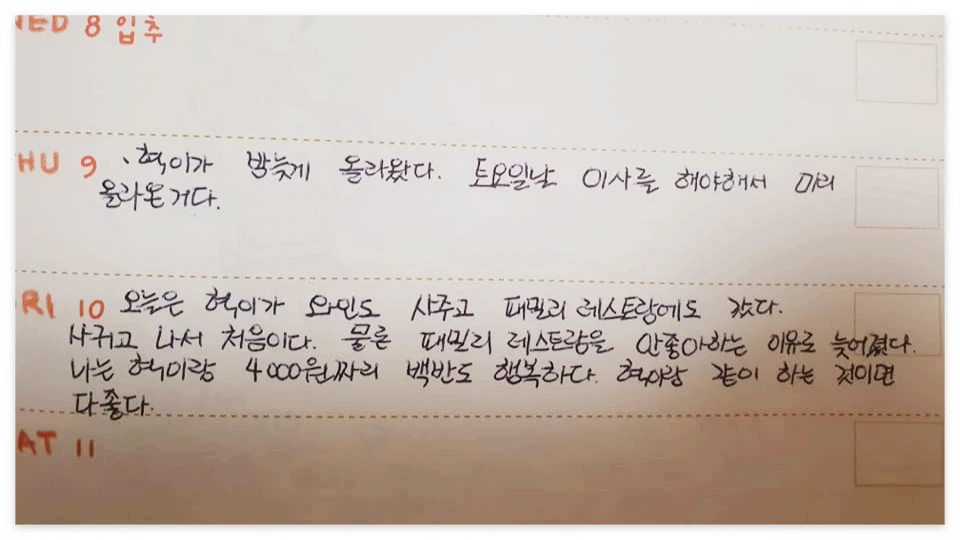 NED 8 입추
HU 9 、혁이가 밤늦게 올라왔다. 토요일날 이사를 해야해서 미리
올라온거다.
RI 10 오늘은 혁이가 와인도 사주고 패밀리 레스토랑에도 갔다.
사귀고 나서 처음이다. 물론 패밀리 레스토랑을 안좋아하는 이유로 늦어졌다.
나는 혁이랑 4000원짜리 백반도 행복하다. 혁이랑 같이 하는 것이면
다좋다.
AT 11